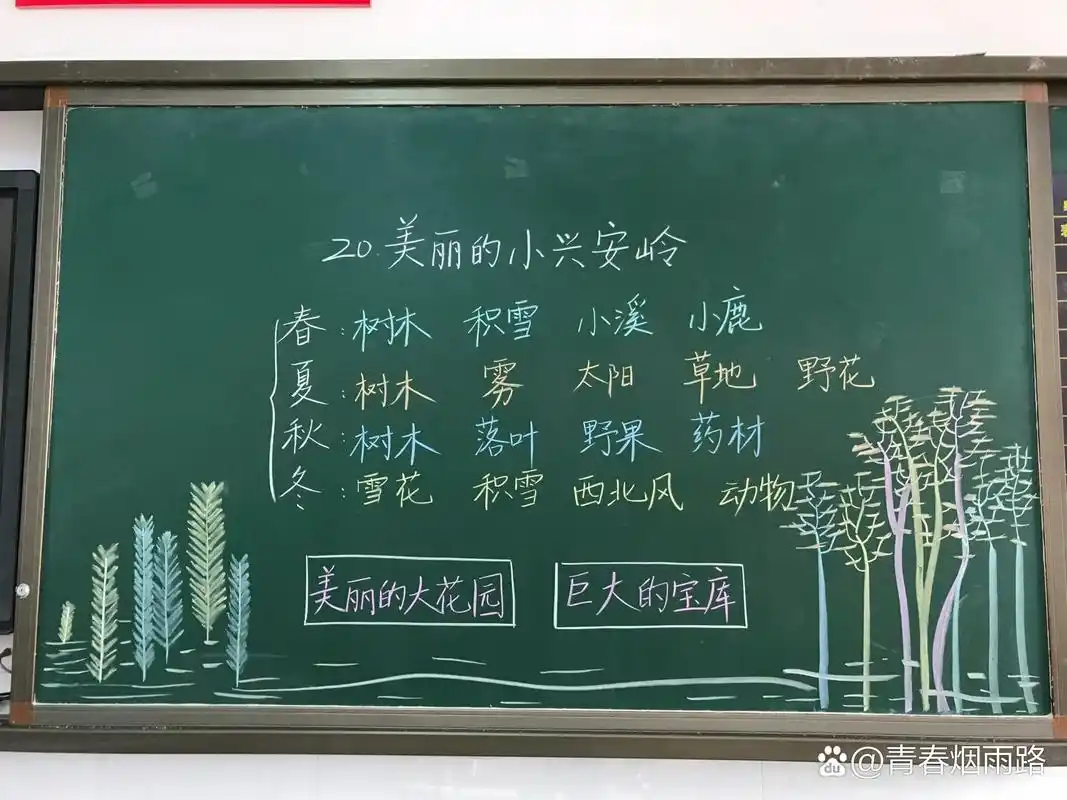 20.美丽的小兴安岭
春:树木 积雪 小溪 小鹿
夏:树木 雾 太阳 草地 野花
秋:树木 落叶 野果 药材
冬:雪花 积雪 西北风 动物
美丽的大花园 巨大的宝库
du @青春烟雨路